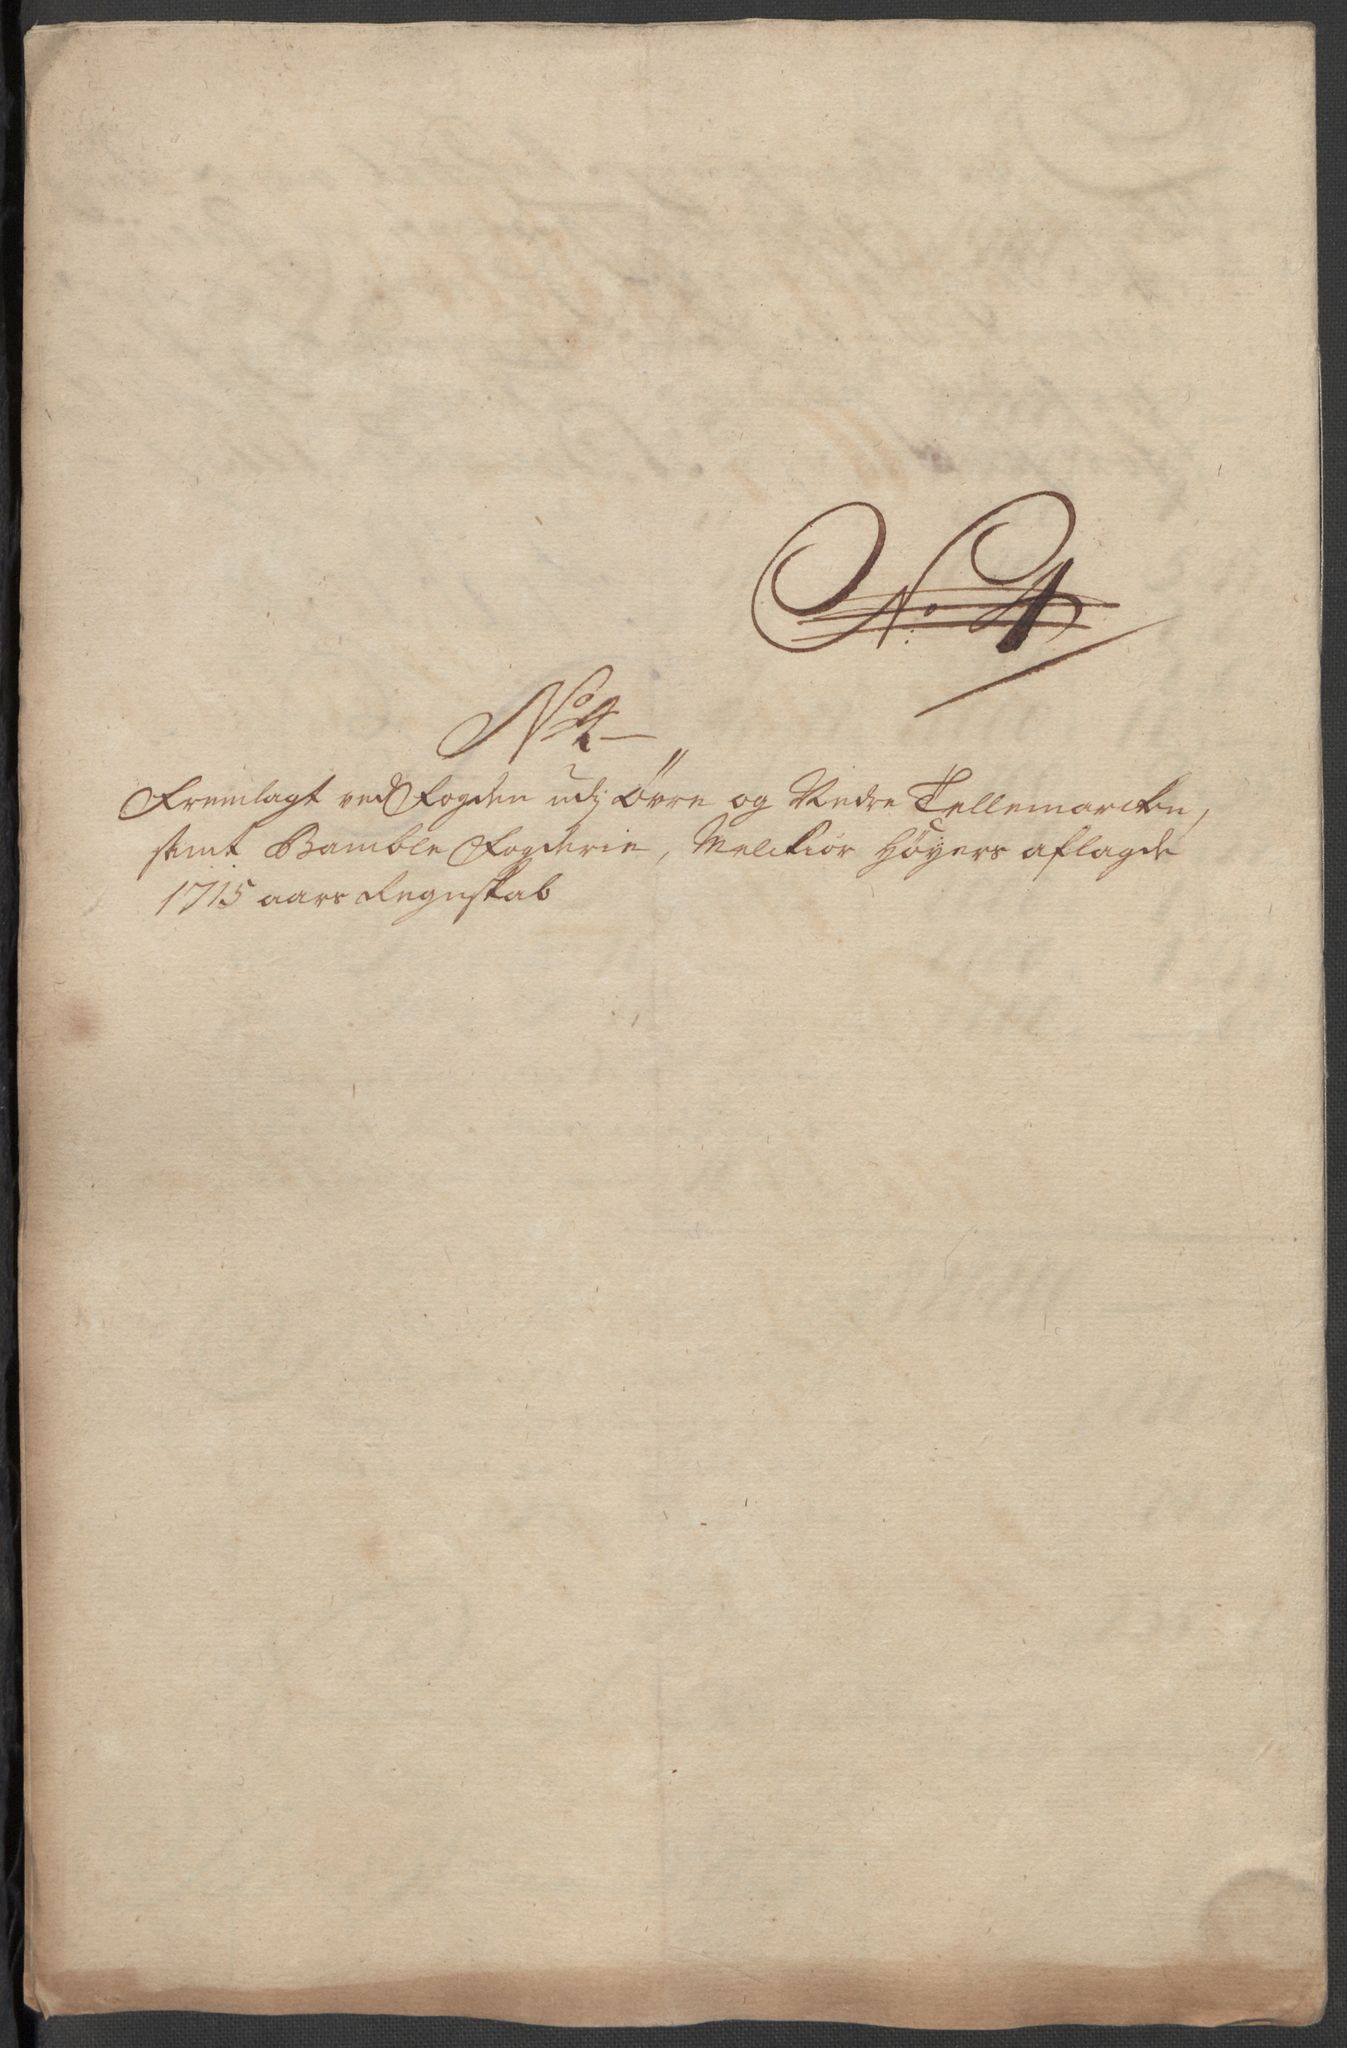 No
No
Fremlagt ved Fogden udj Øvre og Nedre Tellemarcken,
samt Bamble Fogderie, Melchior Høyers aflagde
1715 aars Regnskab